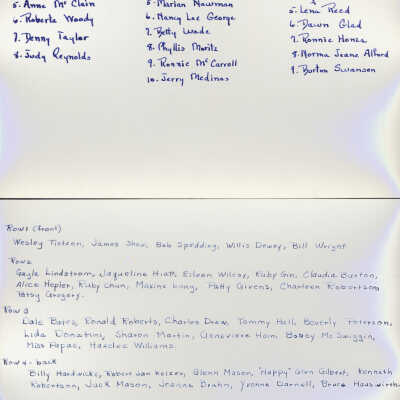 5. Anne McClain
6. Roberta Woody
7. Denny Taylor
8. Judy Reynolds
5. Marian Newman
6. Nancy Lee George
7. Betty Wade
8. Phyllis Moritz
9. Ronnie McCarroll
10. Jerry Medinas
5. Lena Reed
6. Dawn Glad
7. Ronnie Honza
8. Norma Jeane Allard
9. Burton Swansen
Row 1 (front)
Wesley Tietzen, James Shaw, Bob Spedding, Willis Dewey, Bill Wright
Row 2
Gayle Lindstrom, Jaqueline Hiatt, Eileen Wilcox, Ruby Gin, Claudia Burton,
Alice Hepler, Ruby Chun, Maxine Long, Patty Givens, Charleen Robertson
Patsy Gregory.
Row 3
Dale Bates, Ronald Roberts, Charles Drew, Tommy Hall, Beverly Peterson,
Lida Donatini, Sharon Martin, Genevieve Hom, Bobby McSwiggin,
Miss Papas, Hazelee Williams.
Row 4 - back
Billy Hardwicke, Robert Van Keizen, Glenn Mason, "Happy" Glen Gilbert, Kenneth
Robertson, Jack Mason, Jeanne Drahn, Yvonne Darnell, Bruce Hauswirth